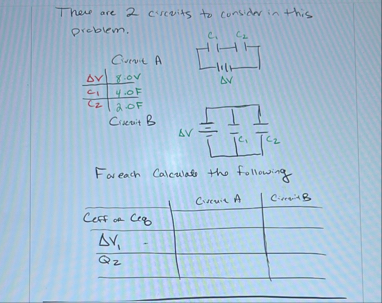 There are 2 circuits to consider in this
problem.
C1 C2
ΔV
Circuit A
ΔV 8.0V
C1 4.0F
C2 2.0F
Circuit B
ΔV C1 C2
For each Calculate the following
Circuit A Circuit B
Ceff or Ceq
ΔV1 -
Q2